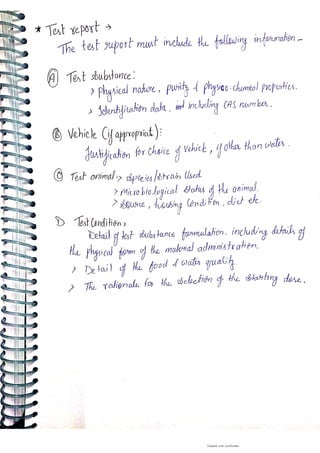 * Test report →
The test report must include the following information -
(A) Test substance:
> physical nature, purity & physco-chemical properties.
> Identification data, including CAS number.
(B) Vehicle (if appropriate):
Justification for choice of vehicle, if other than water.
(C) Test animal → species/strain used
> Microbiological status of the animal.
> Source, housing condition, diet etc.
D) Test Condition >
Detail of test substance formulation. including details of
the physical form of the material administration.
> Detail of the food & water quality
> The rationale for the selection of the starting dose.
Scanned with CamScanner